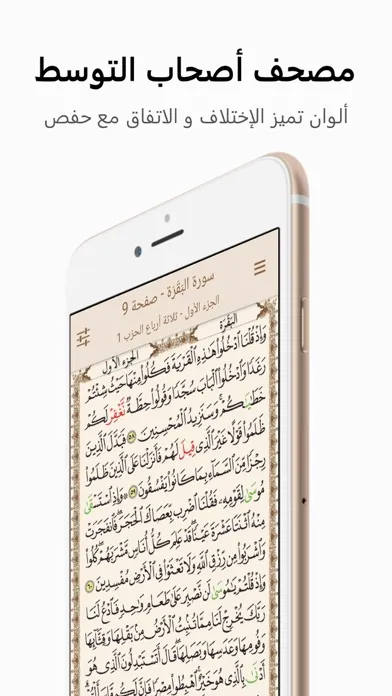 مصحف أصحاب التوسط
ألوان تميز الإختلاف و الاتفاق مع حفص
سورة البَقَرَة - صفحة 9
الجزء الأول - ثلاثة أرباع الحزب 1
البَقَرَة
الجزء الأول
وَإِذْ قُلْنَا ادْخُلُوا هَذِهِ الْقَرْيَةَ فَكُلُوا مِنْهَا حَيْثُ شِئْتُمْ
رَغَدًا وَادْخُلُوا الْبَابَ سُجَّدًا وَقُولُوا حِطَّةٌ تُغْفَرْ لَكُمْ
خَطَايَاكُمْ وَسَنَزِيدُ الْمُحْسِنِينَ ٥٨ فَبَدَّلَ الَّذِينَ
ظَلَمُوا قَوْلًا غَيْرَ الَّذِي قِيلَ لَهُمْ فَأَنزَلْنَا عَلَى الَّذِينَ ظَلَمُوا
رِجْزًا مِنَ السَّمَاءِ بِمَا كَانُوا يَفْسُقُونَ ٥٩ وَإِذِ اسْتَسْقَى
مُوسَى لِقَوْمِهِ فَقُلْنَا اضْرِب بِعَصَاكَ الْحَجَرَ فَانفَجَرَتْ
مِنْهُ اثْنَتَا عَشْرَةَ عَيْنًا قَدْ عَلِمَ كُلُّ أُنَاسٍ مَشْرَبَهُمْ كُلُوا
وَاشْرَبُوا مِن رِّزْقِ اللَّهِ وَلَا تَعْثَوْا فِي الْأَرْضِ مُفْسِدِينَ ٦٠
وَإِذْ قُلْتُمْ يَامُوسَى لَن نَّصْبِرَ عَلَى طَعَامٍ وَاحِدٍ فَادْعُ لَنَا
رَبَّكَ يُخْرِجْ لَنَا مِمَّا تُنبِتُ الْأَرْضُ مِن بَقْلِهَا وَقِثَّائِهَا
وَفُومِهَا وَعَدَسِهَا وَبَصَلِهَا قَالَ أَتَسْتَبْدِلُونَ الَّذِي هُوَ
أَدْنَى بِالَّذِي هُوَ خَيْرٌ اهْبِطُوا مِصْرًا فَإِنَّ لَكُم